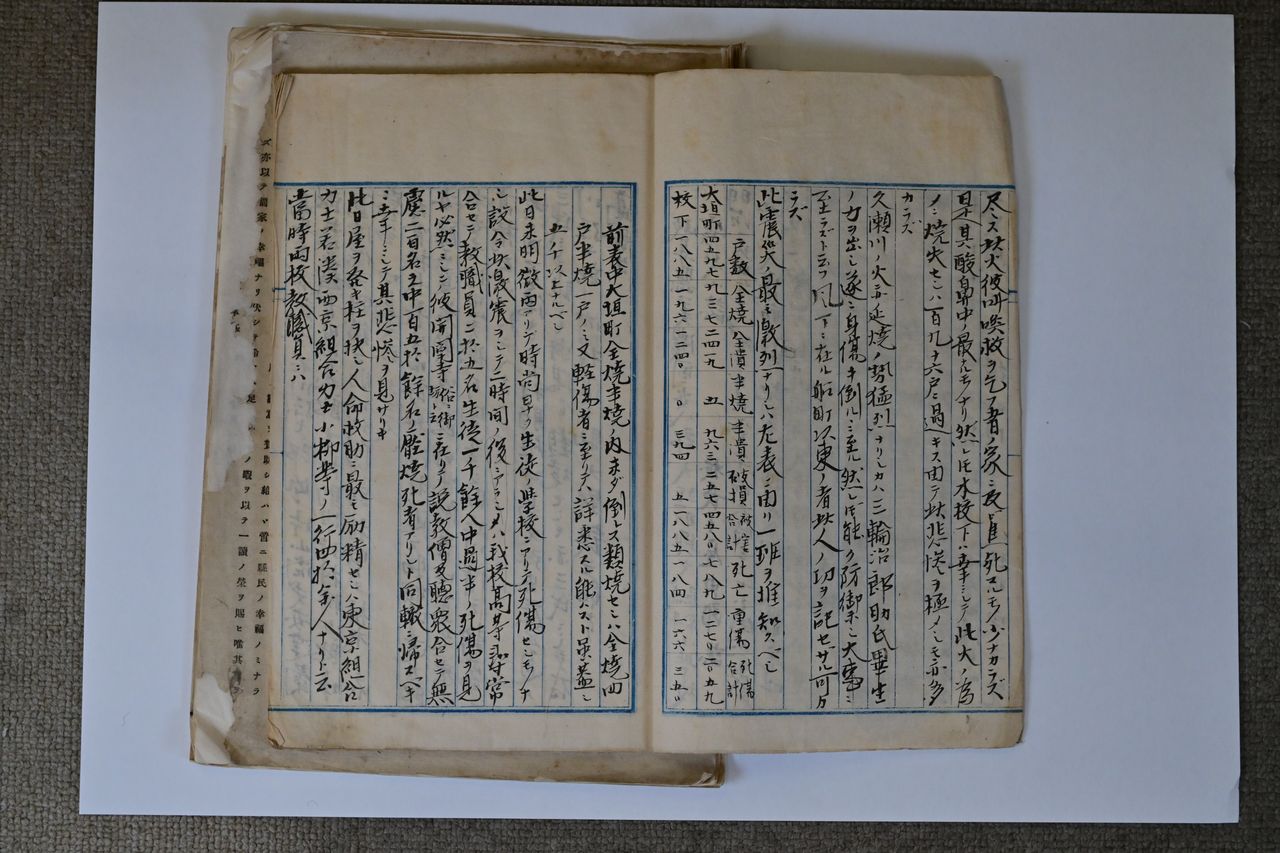 尽ス此火彼叫喚救ヲ乞フ者ノ家ニ及ビ焦死スルモノ少ナカラズ
是レ其酸鼻中ノ最タルモノナリ然レ𪜈水校下ハ幸ニシテ此火ノ為
メニ焼失セシハ一百九十六戸ニ過キス由テ此悲惨ヲ極メシモ亦多
カラズ
久瀬川ノ火亦延焼ノ勢猛烈ナリシカハ三輪治郎助氏畢生
ノ力ヲ出シ遂ニ身傷キ倒ルニ至ル然レ𪜈能ク防御シ大事ニ
至ラズト云フ風下ニ在ル船町以東ノ者此人ノ功ヲ記セザル可カ
ラズ
此震災ノ最モ激烈ナリシハ左表ノ由リ一班ヲ推知スベシ
戸数 全焼 全潰 半焼 半潰 破損 被害合計 死亡 重傷 死傷合計
大垣町 四五九七 九三七 二四一九 五 九六三 二五七 四五八〇 七八九 一二七〇 二〇五九
校下 一八八五 一九六 一二四〇 〇 三九四 五一 八八五 一八四 一六六 三五〇
前表中大垣町全焼半焼ノ内未ダ倒レス類焼セシハ全焼四
戸半焼一戸ノミ又軽傷者ニ至リテハ詳悉スル能ハスト虽蓋シ
五千以上ナルベシ
此日未明微雨アリテ時尚早ク生徒ノ学校ニアリテ死傷セシモノナ
シ設令此激震ヲシテ二時間ノ後ニアラシメハ我校高等尋常
合セテ教職員二拾五名生徒一千餘人中過半ノ死傷ヲ見
ルヤ必然ニシテ彼開闡寺俗ニ御坊ト云在リ説教僧及聴衆合セテ無
慮二百名ノ中百五拾餘名ノ壓焼死者アリシト同轍ニ帰スベキ
ニ幸ニシテ其悲惨ヲ見ケリキ
此日屋ヲ発キ柱ヲ抜キ人命救助ニ最モ励精セシハ東京組合
力士若湊西京組合力士小柳等ノ一行四拾余人ナリト云
當時両校教職員ハ
ズ亦以テ國家ノ幸福ナリ
給ハヾ啻ニ縣民ノ幸福ノミナラ
ノ暇ヲ以テ一讀ノ榮ヲ賜ヒ